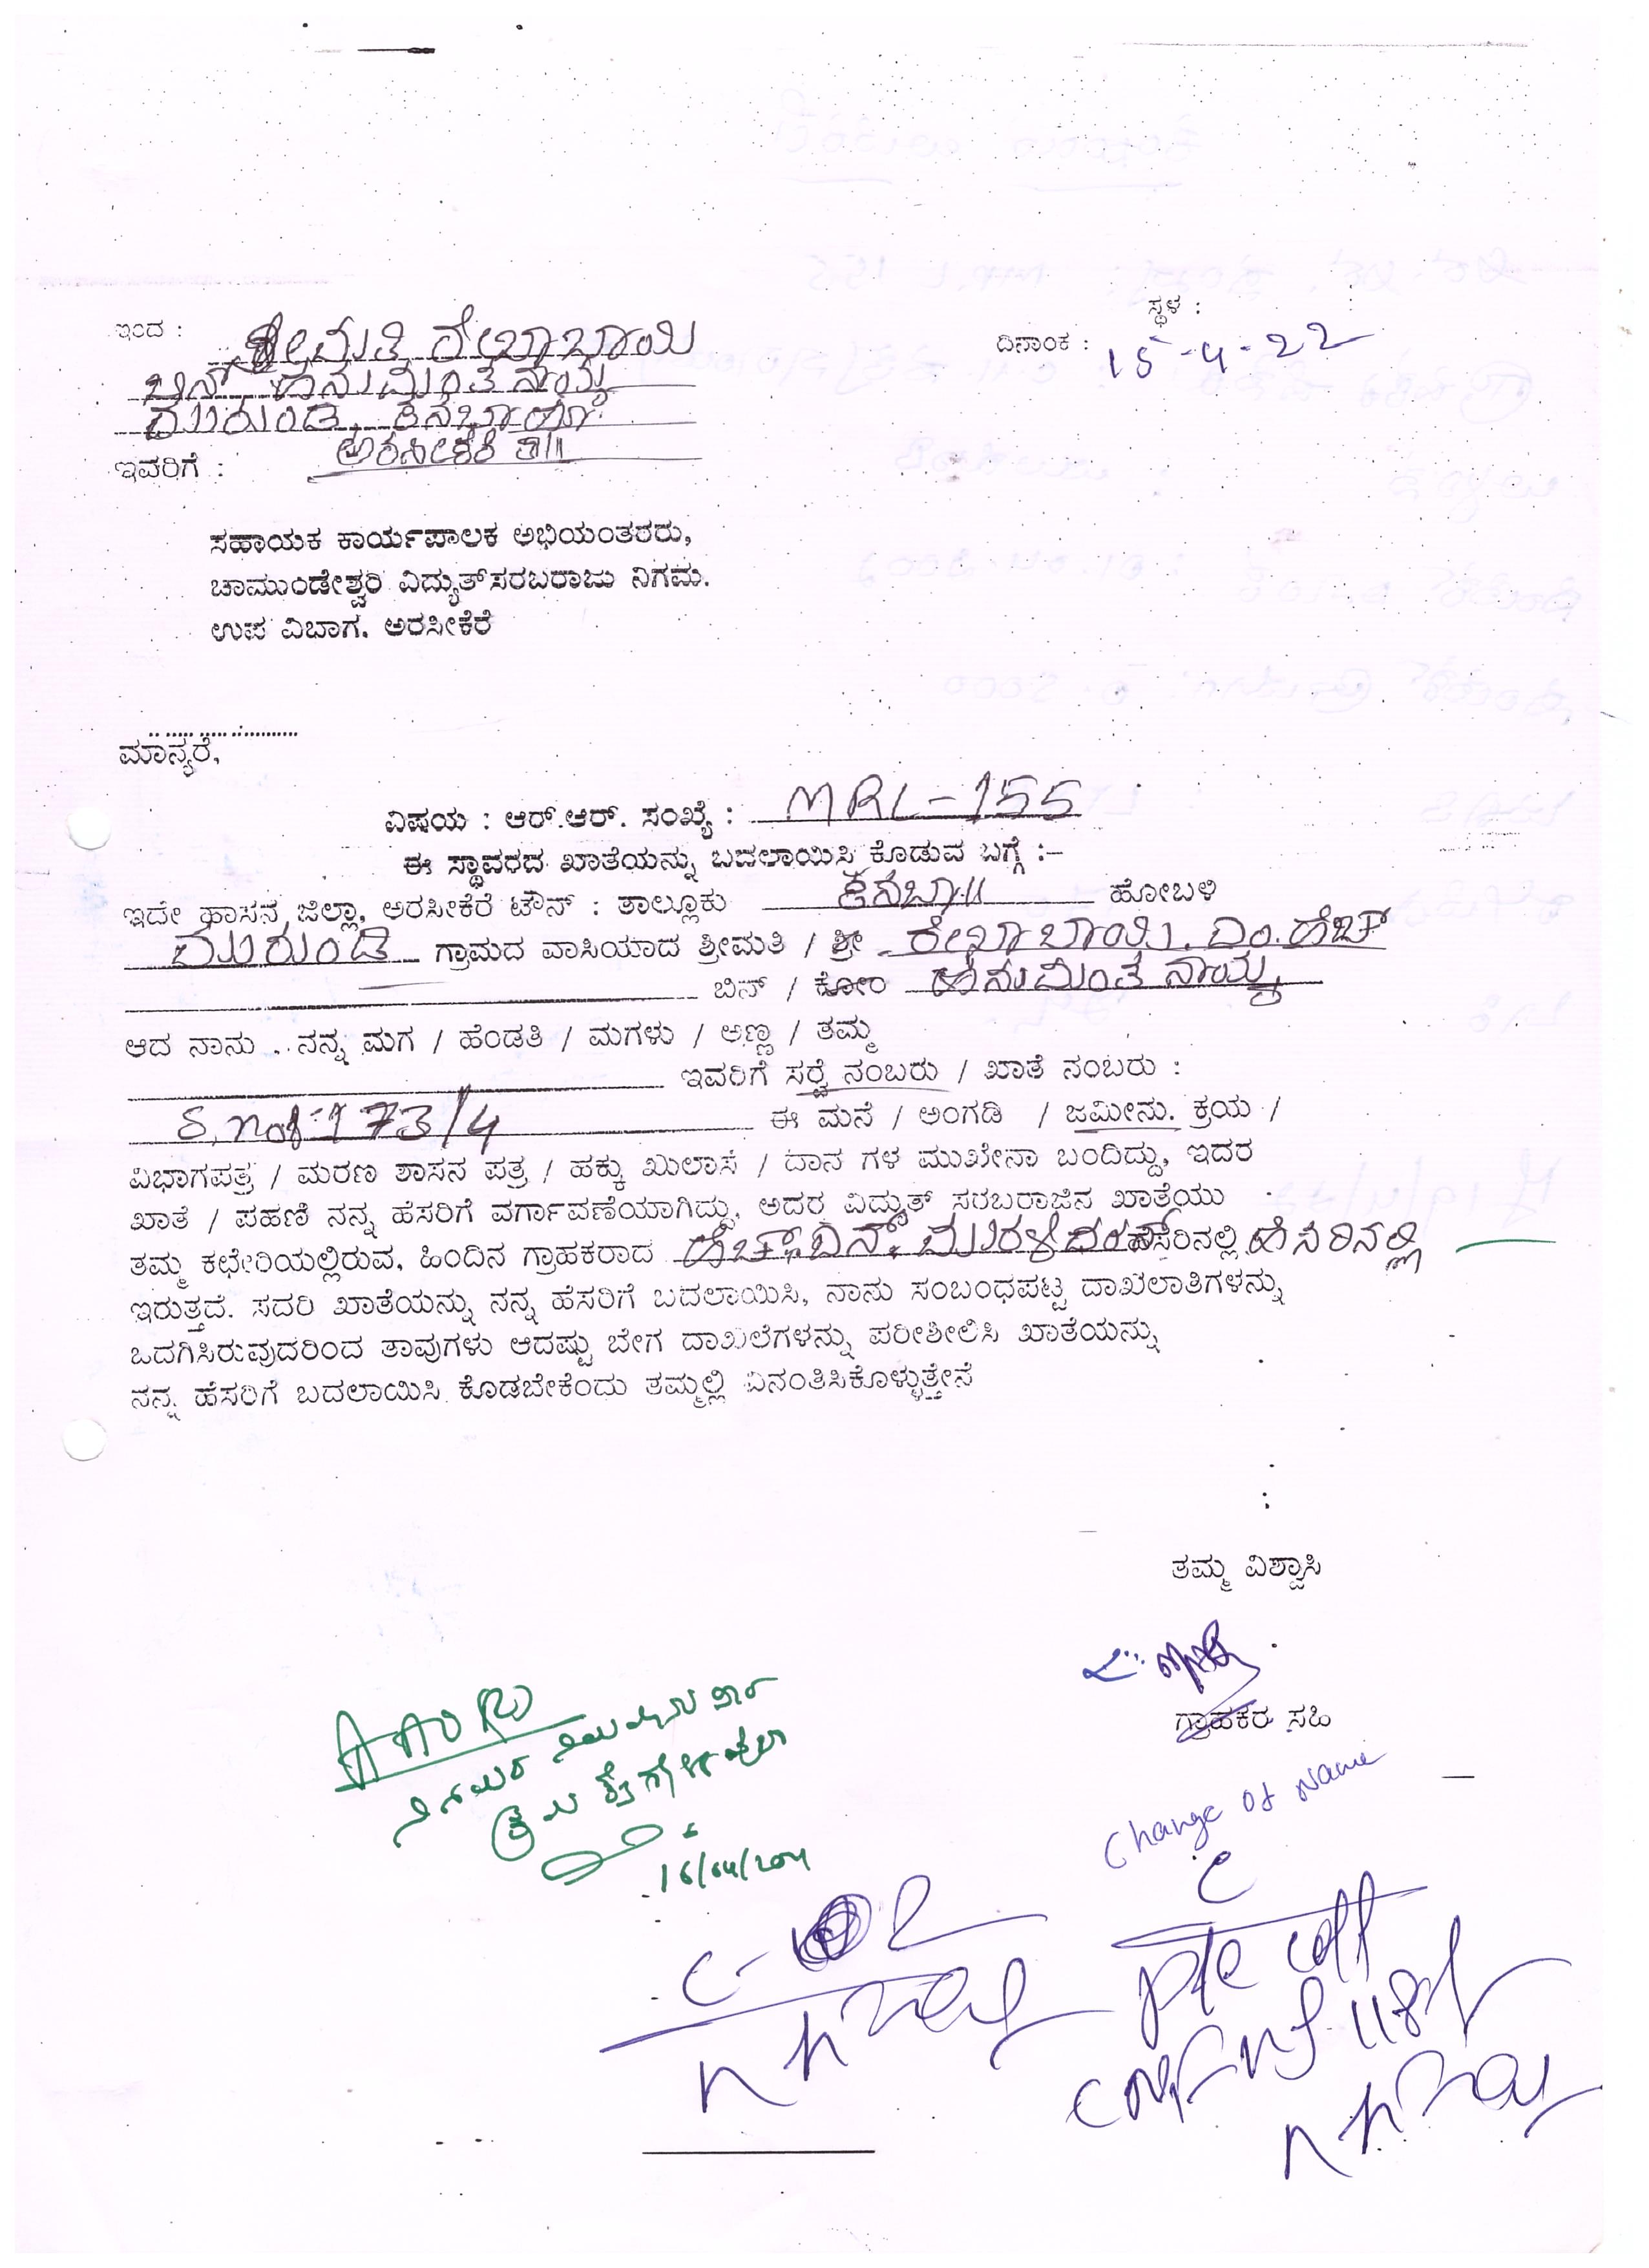 ಸ್ಥಳ :
ಇಂದ : ಶ್ರೀಮತಿ ರೇಖಾಬಾಯಿ
ದಿನಾಂಕ : 15-4-22
ಬಿನ್ ಹನುಮಂತ ನಾಯ್ಕ
ಮುರುಂಡಿ, ಕಸಬಾ ಹೋ
ಅರಸೀಕೆರೆ ತಾ||
ಇವರಿಗೆ :
ಸಹಾಯಕ ಕಾರ್ಯಪಾಲಕ ಅಭಿಯಂತರರು,
ಚಾಮುಂಡೇಶ್ವರಿ ವಿದ್ಯುತ್‌ಸರಬರಾಜು ನಿಗಮ.
ಉಪ ವಿಬಾಗ. ಅರಸೀಕೆರೆ
ಮಾನ್ಯರೆ,
ವಿಷಯ : ಆರ್.ಆರ್. ಸಂಖ್ಯೆ : MRL-155
ಈ ಸ್ಥಾವರದ ಖಾತೆಯನ್ನು ಬದಲಾಯಿಸಿ ಕೊಡುವ ಬಗ್ಗೆ :-
ಇದೇ ಹಾಸನ ಜಿಲ್ಲಾ, ಅರಸೀಕೆರೆ ಟೌನ್ : ತಾಲ್ಲೂಕು ಕಸಬಾ|| ಹೋಬಳಿ
ಮುರುಂಡಿ ಗ್ರಾಮದ ವಾಸಿಯಾದ ಶ್ರೀಮತಿ / ಶ್ರೀ ರೇಖಾ ಬಾಯಿ. ಎಂ.ಹೆಚ್
ಬಿನ್ / ಕೋಂ ಹನುಮಂತ ನಾಯ್ಕ
ಆದ ನಾನು ನನ್ನ ಮಗ / ಹೆಂಡತಿ / ಮಗಳು / ಅಣ್ಣ / ತಮ್ಮ
ಇವರಿಗೆ ಸರ್ವೆ ನಂಬರು / ಖಾತೆ ನಂಬರು :
S.no: 173/4 ಈ ಮನೆ / ಅಂಗಡಿ / ಜಮೀನು. ಕ್ರಯ /
ವಿಭಾಗಪತ್ರ / ಮರಣ ಶಾಸನ ಪತ್ರ / ಹಕ್ಕು ಖುಲಾಸೆ / ದಾನ ಗಳ ಮುಖೇನಾ ಬಂದಿದ್ದು, ಇದರ
ಖಾತೆ / ಪಹಣಿ ನನ್ನ ಹೆಸರಿಗೆ ವರ್ಗಾವಣೆಯಾಗಿದ್ದು, ಅದರ ವಿದ್ಯುತ್ ಸರಬರಾಜಿನ ಖಾತೆಯು
ತಮ್ಮ ಕಛೇರಿಯಲ್ಲಿರುವ, ಹಿಂದಿನ ಗ್ರಾಹಕರಾದ ಹೆಚ್.ಎನ್. ಹೆಸರಿನಲ್ಲಿ ಹೆಸರಿನಲ್ಲಿ
ಇರುತ್ತದೆ. ಸದರಿ ಖಾತೆಯನ್ನು ನನ್ನ ಹೆಸರಿಗೆ ಬದಲಾಯಿಸಿ, ನಾನು ಸಂಬಂಧಪಟ್ಟ ದಾಖಲಾತಿಗಳನ್ನು
ಒದಗಿಸಿರುವುದರಿಂದ ತಾವುಗಳು ಆದಷ್ಟು ಬೇಗ ದಾಖಲೆಗಳನ್ನು ಪರೀಶೀಲಿಸಿ ಖಾತೆಯನ್ನು
ನನ್ನ ಹೆಸರಿಗೆ ಬದಲಾಯಿಸಿ ಕೊಡಬೇಕೆಂದು ತಮ್ಮಲ್ಲಿ ವಿನಂತಿಸಿಕೊಳ್ಳುತ್ತೇನೆ
ತಮ್ಮ ವಿಶ್ವಾಸಿ
ಗ್ರಾಹಕರ ಸಹಿ
Change of Name